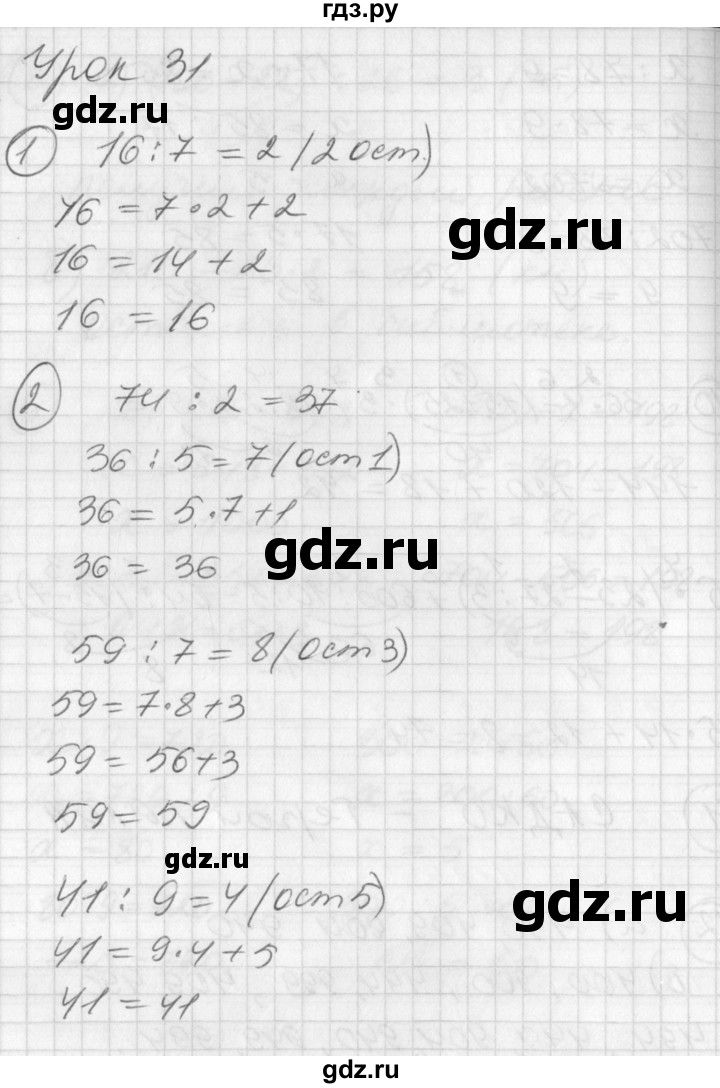 гдз.ру
Урок 31
gdz.ru
1 16 : 7 = 2 (2 ост)
16 = 7·2+2
gdz.ru
16 = 14+2
16 = 16
2 74 : 2 = 37
36 : 5 = 7 (ост 1)
36 = 5·7+1
gdz.ru
36 = 36
59 : 7 = 8 (ост 3)
59 = 7·8+3
59 = 56+3
59 = 59
gdz.ru
41 : 9 = 4 (ост 5)
gdz.ru
41 = 9·4+5
41 = 41
gdz.ru